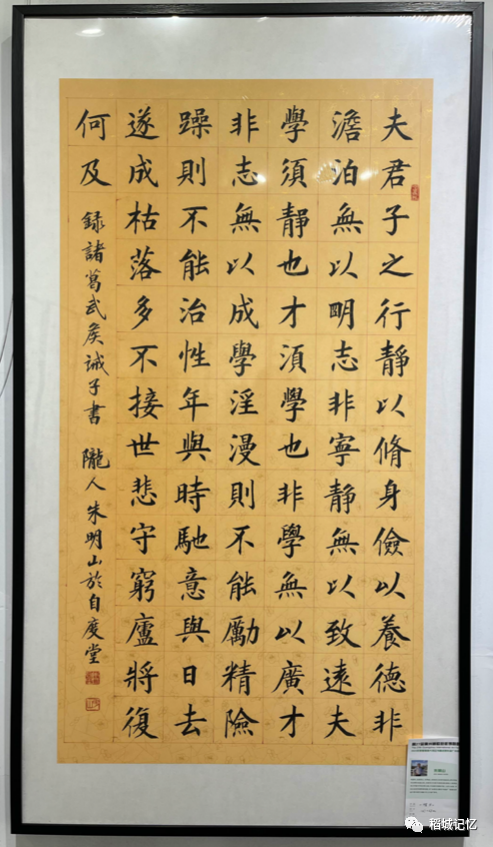 夫君子之行靜以脩身儉以養德非
澹泊無以明志非寧靜無以致遠夫
學須靜也才須學也非學無以廣才
非志無以成學淫漫則不能勵精險
躁則不能治性年與時馳意與日去
遂成枯落多不接世悲守窮廬將復
何及 録諸葛武矦誡子書 隴人朱明山於自度堂
稻城记忆